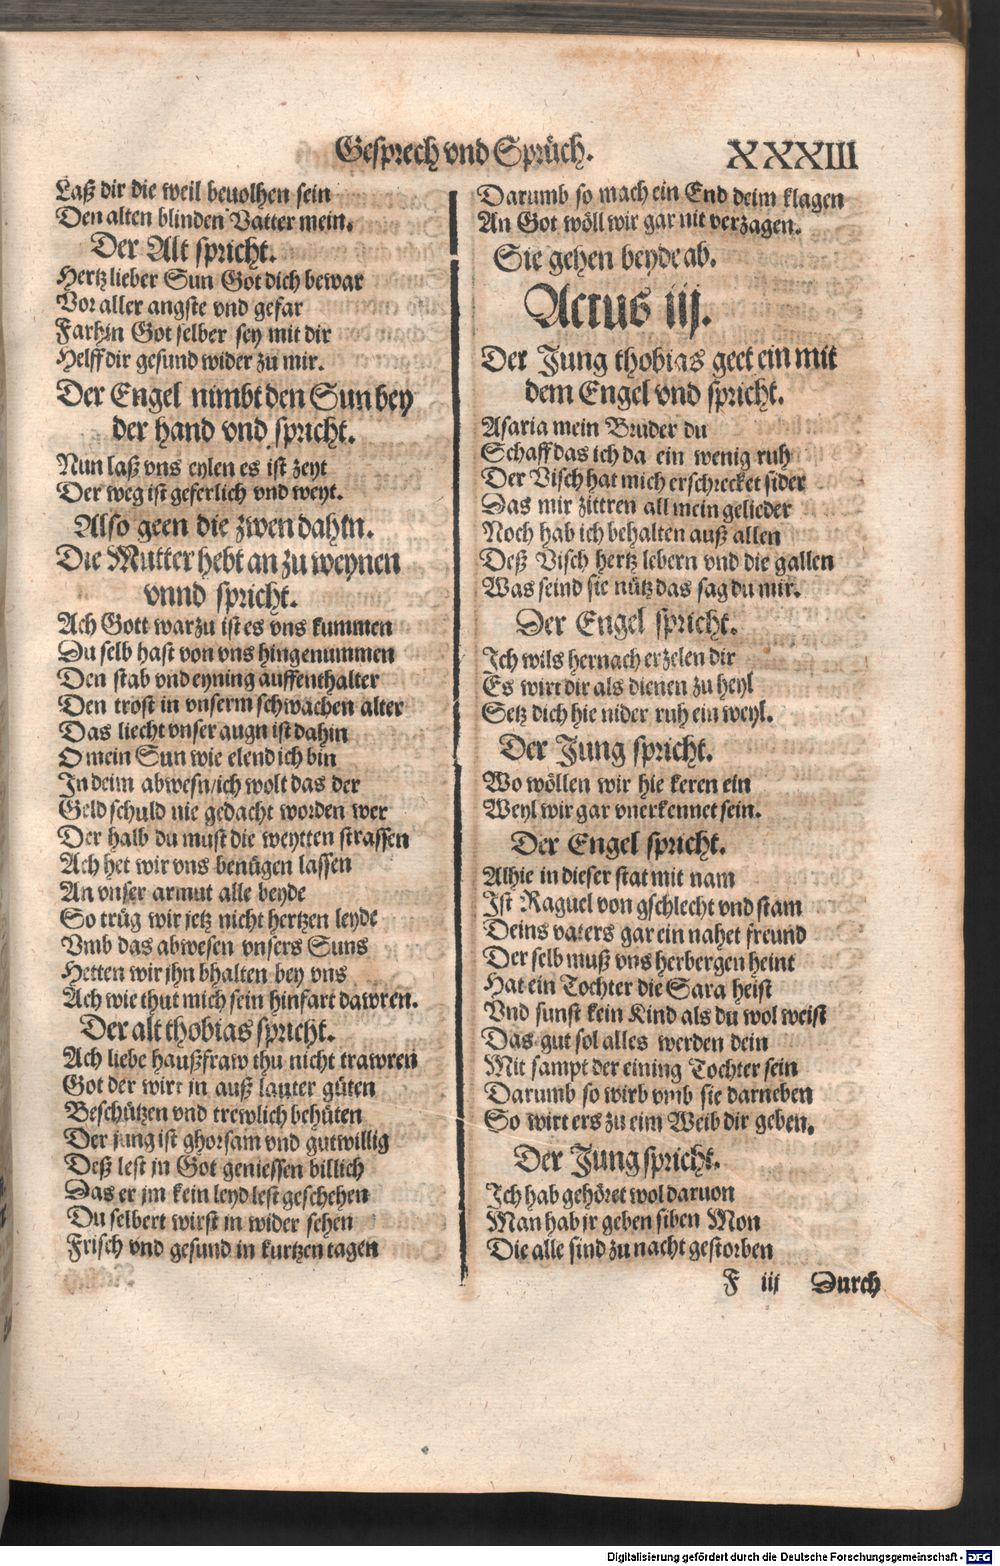 Gesprech vnd Sprüch. XXXIII
Laß dir die weil beuolhen sein
Den alten blinden Vatter mein.
Der Alt spricht.
Hertzlieber Sun Got dich bewar
Vor aller angste vnd gefar
Farhin Got selber sey mit dir
Helff dir gesund wider zu mir.
Der Engel nimbt den Sun bey
der hand vnd spricht.
Nun laß vns eylen es ist zeyt
Der weg ist geferlich vnd weyt.
Also geen die zwen dahin.
Die Mutter hebt an zu weynen
vnnd spricht.
Ach Gott warzu ist es vns kummen
Du selb hast von vns hingenummen
Den stab vnd eyning auffenthalter
Den trost in vnserm schwachen alter
Das liecht vnser augn ist dahin
O mein Sun wie elend ich bin
In deim abwesn/ich wolt das der
Geld schuld nie gedacht worden wer
Der halb du must die weytten strassen
Ach het wir vns benügen lassen
An vnser armut alle beyde
So trüg wir jetz nicht hertzen leyde
Vmb das abwesen vnsers Suns
Hetten wir jhn bhalten bey vns
Ach wie thut mich sein hinfart dawren.
Der alt thobias spricht.
Ach liebe haußfraw thu nicht trawren
Got der wirt jn auß lauter güten
Beschützen vnd trewlich behüten
Der jung ist ghorsam vnd gutwillig
Deß lest jn Got geniessen billich
Das er jm kein leyd lest geschehen
Du selbert wirst jn wider sehen
Frisch vnd gesund in kurtzen tagen
Darumb so mach ein End deim klagen
An Got wöll wir gar nit verzagen.
Sie gehen beyde ab.
Actus iij.
Der Jung thobias geet ein mit
dem Engel vnd spricht.
Asaria mein Bruder du
Schaff das ich da ein wenig ruh
Der Visch hat mich erschrecket sider
Das mir zittren all mein gelieder
Noch hab ich behalten auß allen
Deß Visch hertz lebern vnd die gallen
Was seind sie nütz das sag du mir.
Der Engel spricht.
Ich wils hernach erzelen dir
Es wirt dir als dienen zu heyl
Setz dich hie nider ruh ein weyl.
Der Jung spricht.
Wo wöllen wir hie keren ein
Weyl wir gar vnerkennet sein.
Der Engel spricht.
Alhie in dieser stat mit nam
Ist Raguel von gschlecht vnd stam
Deins vaters gar ein nahet freund
Der selb muß vns herbergen heint
Hat ein Tochter die Sara heist
Vnd sunst kein Kind als du wol weist
Das gut sol alles werden dein
Mit sampt der eining Tochter sein
Darumb so wirb vmb sie darneben
So wirt ers zu eim Weib dir geben.
Der Jung spricht.
Ich hab gehöret wol daruon
Man hab jr geben siben Mon
Die alle sind zu nacht gestorben
F iij Durch
Digitalisierung gefördert durch die Deutsche Forschungsgemeinschaft - DFG